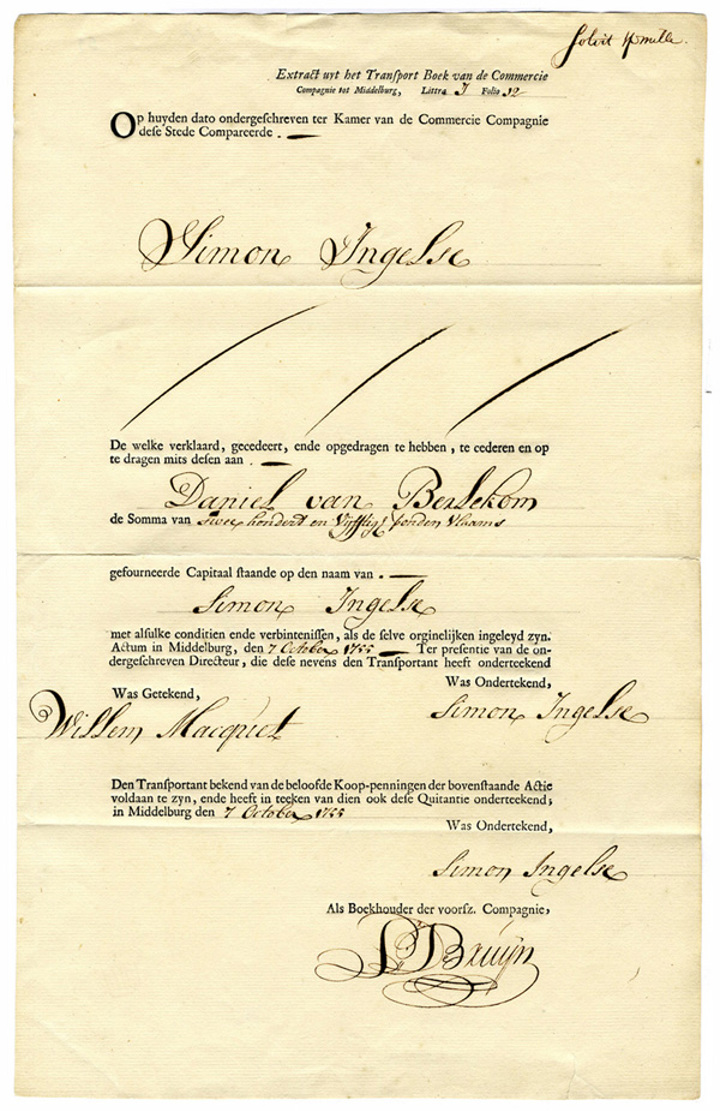 solvit pmille.
Extract uyt het Transport Boek van de Commercie
Compagnie tot Middelburg, Littra J Folio 12
Op huyden dato ondergeschreven ter Kamer van de Commercie Compagnie
dese Stede Compareerde .
Simon Ingelse
De welke verklaard, gecedeert, ende opgedragen te hebben, te cederen en op
te dragen mits desen aan .
Daniel van Berlekom
de Somma van twee hondert en Vyfftigh ponden Vlaams
gefourneerde Capitaal staande op den naam van .
Simon Ingelse
met alsulke conditien ende verbintenissen, als de selve orginelijken ingeleyd zyn.
Actum in Middelburg, den 7 October 1755 Ter presentie van de on-
dergeschreven Directeur, die dese nevens den Transportant heeft onderteekend
Was Ondertekend,
Was Getekend,
Simon Ingelse
Willem Macquet
Den Transportant bekend van de beloofde Koop-penningen der bovenstaande Actie
voldaan te zyn, ende heeft in teeken van dien ook dese Quitantie onderteekend;
in Middelburg den 7 October 1755
Was Ondertekend,
Simon Ingelse
Als Boekhouder der voorsz. Compagnie,
Bruyn